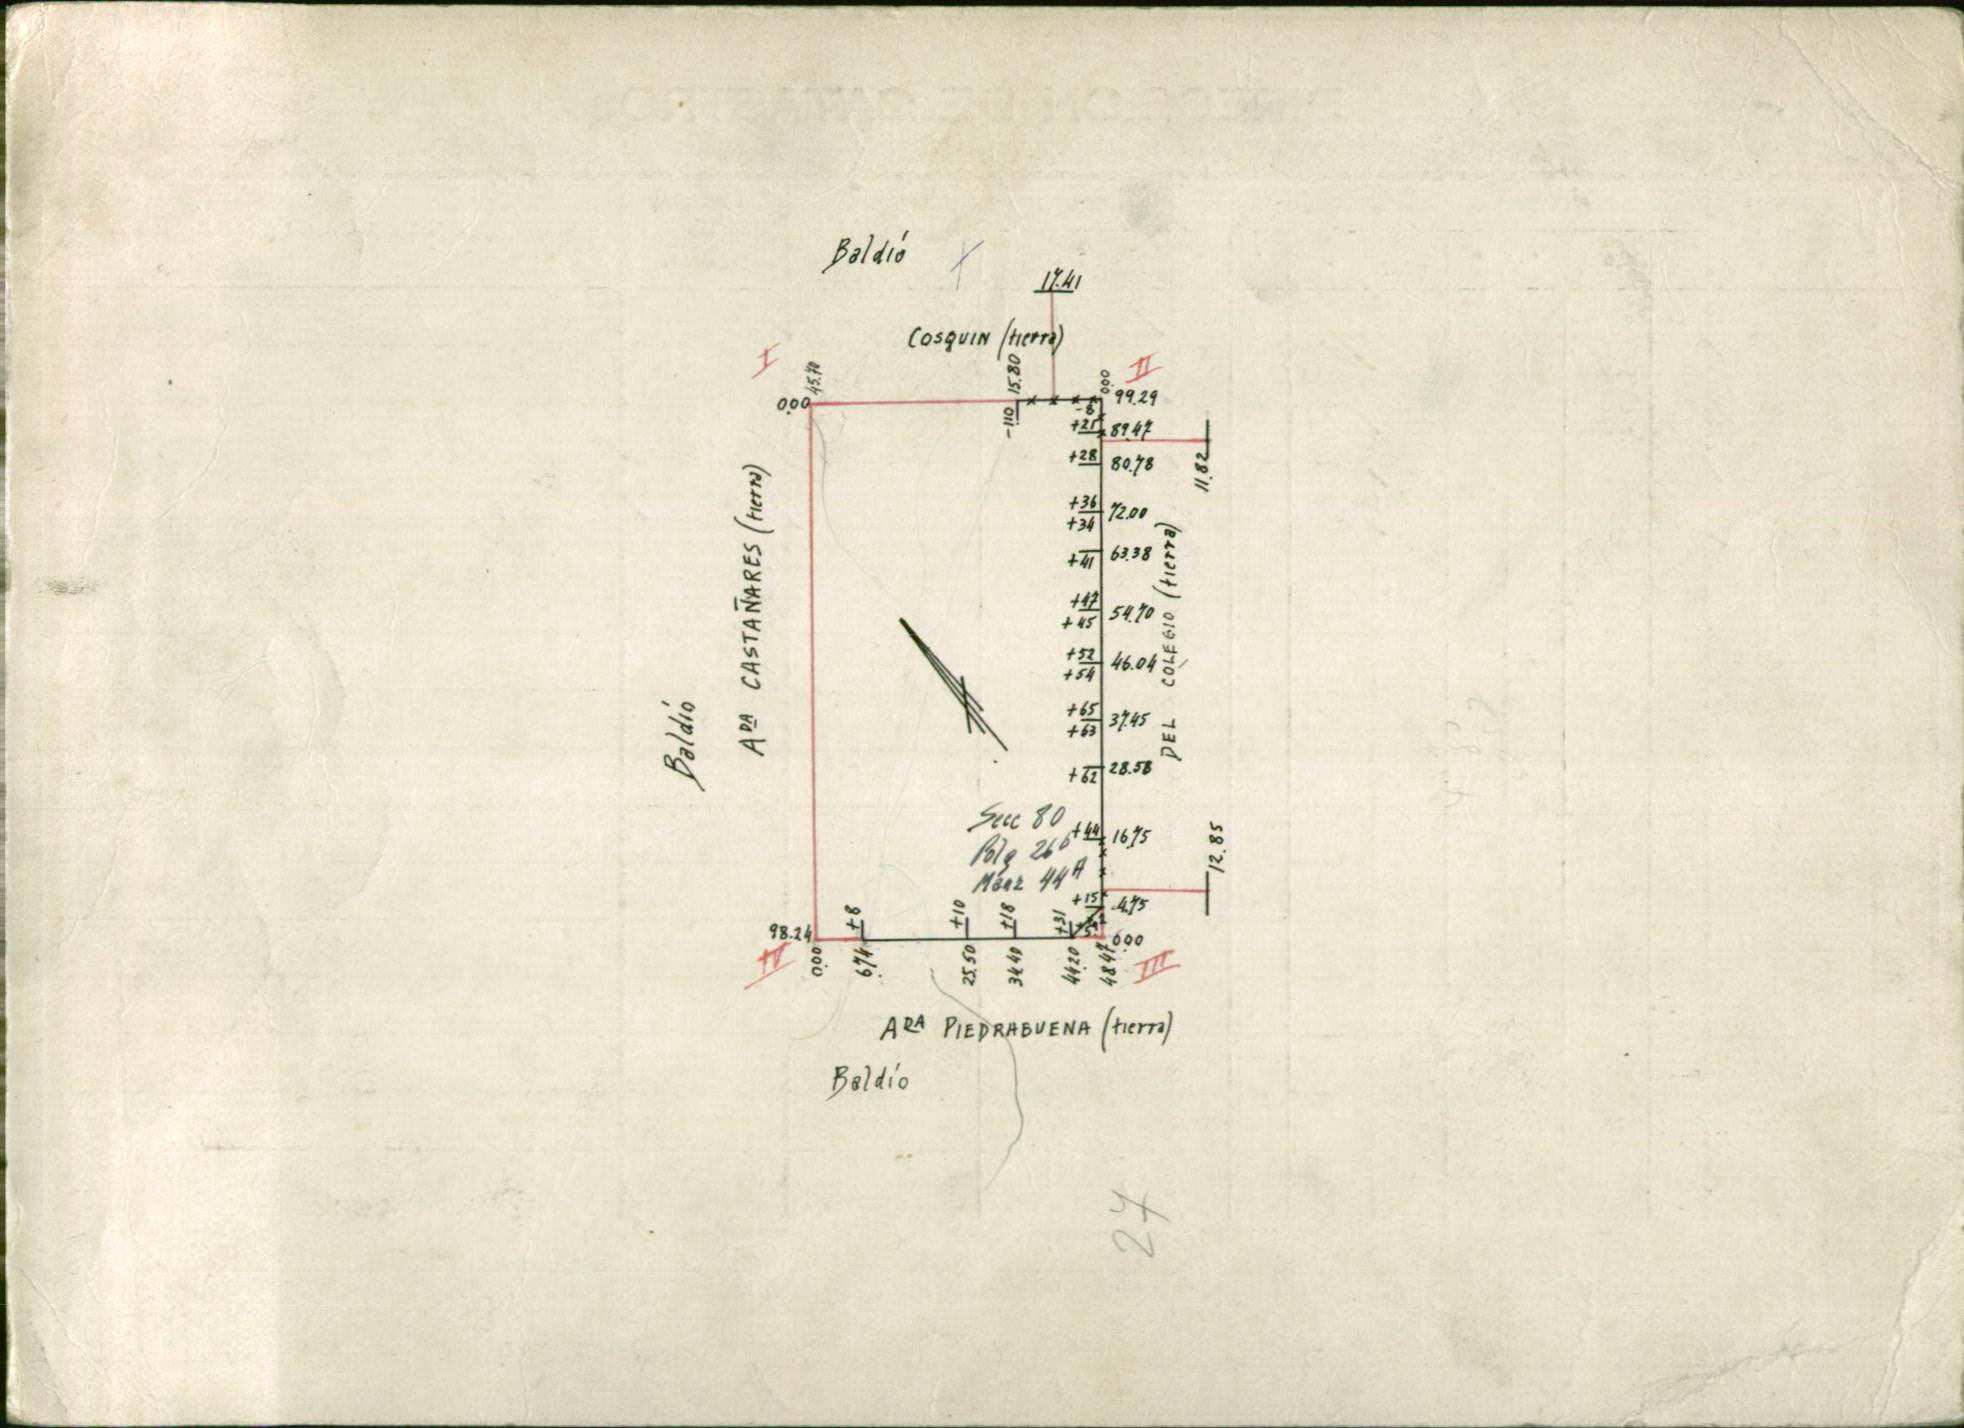 Baldío
17.41
COSQUIN (tierra)
I
II
45.70
15.80
0.00
0.00
99.29
-110
-8
+21
89.47
+28
80.78
11.82
+36
+34
72.00
+41
63.38
+47
+45
54.70
+52
+54
46.04
+65
+63
37.45
+62
28.58
ADA CASTAÑARES (tierra)
Baldío
DEL COLEGIO (tierra)
Secc 80
Polg 26b
Manz 44A
+44
16.75
12.85
+15
4.75
+8
+10
+18
+31
98.24
0.00
IV
III
0.00
6.74
25.50
34.40
44.20
48.47
ADA PIEDRABUENA (tierra)
Baldío
27